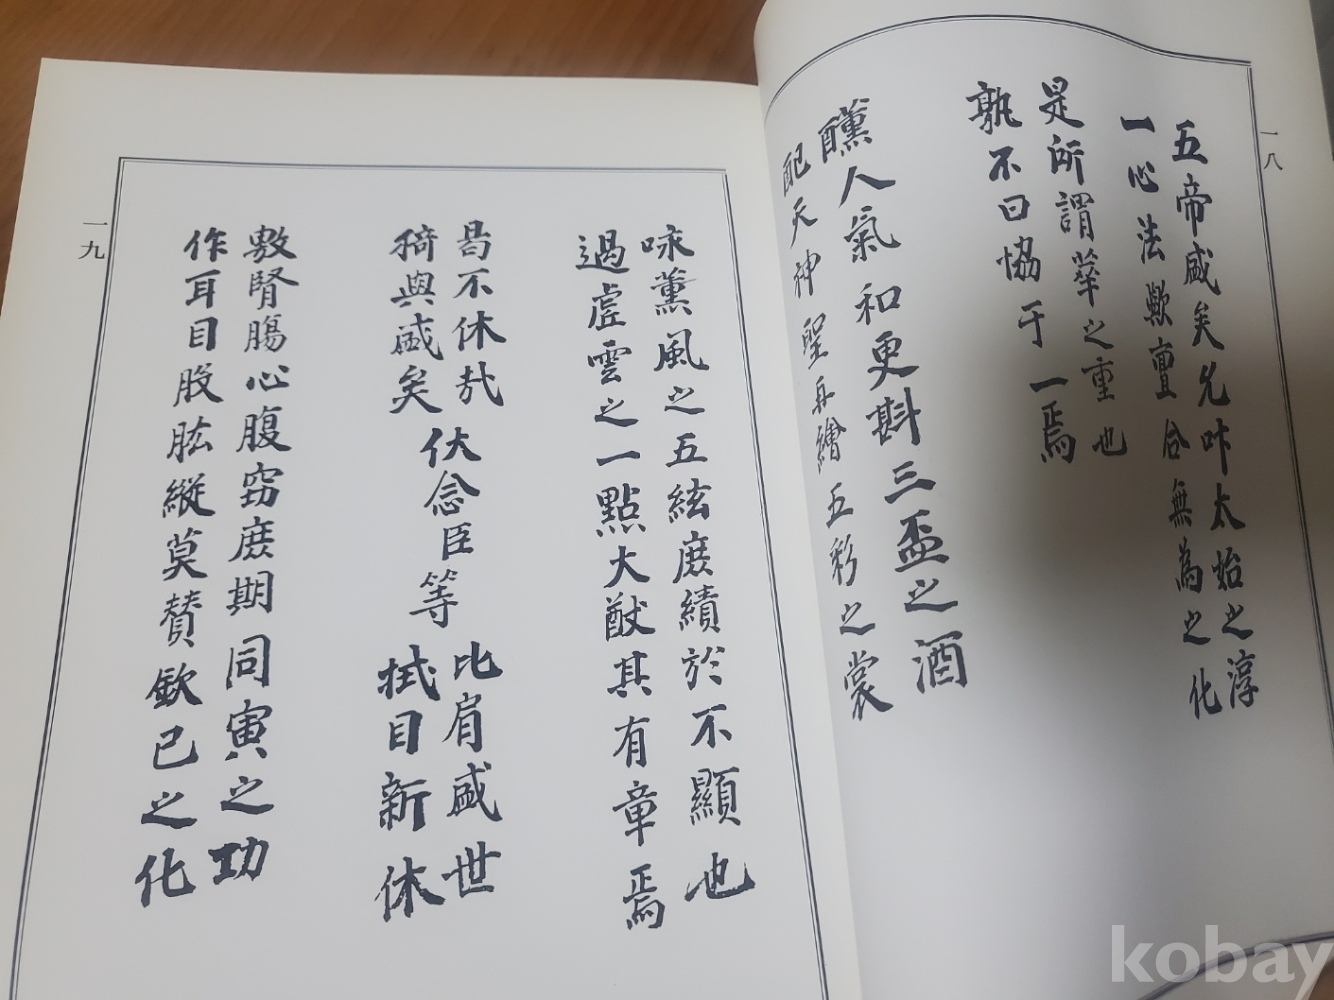 一八
五帝咸矣允咋太始之淳
一心法歟亶合無為之化
是所謂華之重也
孰不曰協于一焉
醺人氣和更斟三盃之酒
配天神聖再繪五彩之裳
咏薰風之五絃庶績於不顯也
過虛雲之一點大猷其有章焉
曷不休哉
猗與盛矣
伏念臣等
比肩盛世
拭目新休
敷腎腸心腹窃庶期同寅之功
作耳目股肱縱莫贊欽已之化
一九
kobay